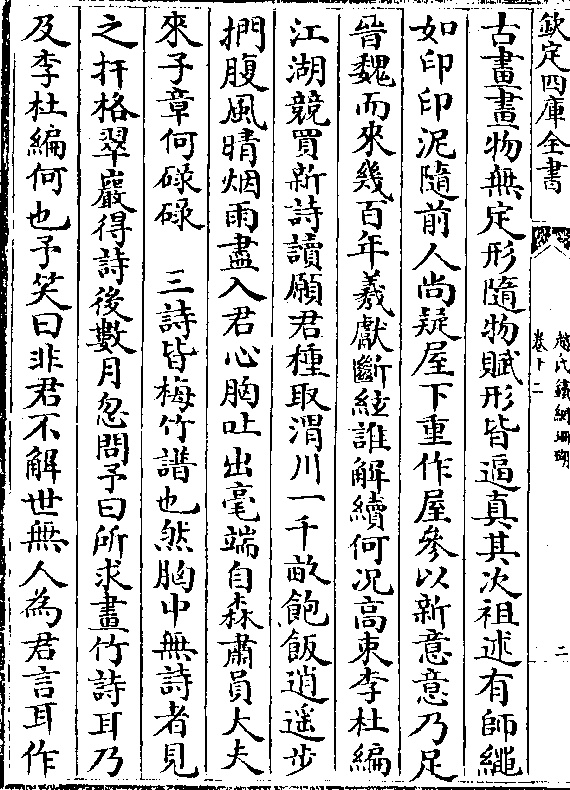 欽定四庫全書
趙氏鐵網珊瑚
卷十二
二
古畫畫物無定形隨物賦形皆逼真其次祖述有師繩
如印印泥隨前人尚疑屋下重作屋參以新意意乃足
晉魏而來幾百年羲獻斷絃誰解續何况高束李杜編
江湖競買新詩讀願君種取渭川一千畝飽飯逍遥步
捫腹風晴烟雨盡入君心胸吐出毫端自森肅員大夫
來子章何碌碌　三詩皆梅竹譜也然胸中無詩者見
之扞格翠巖得詩後數月忽問予曰所求畫竹詩耳乃
及李杜編何也予笑曰非君不解世無人為君言耳作